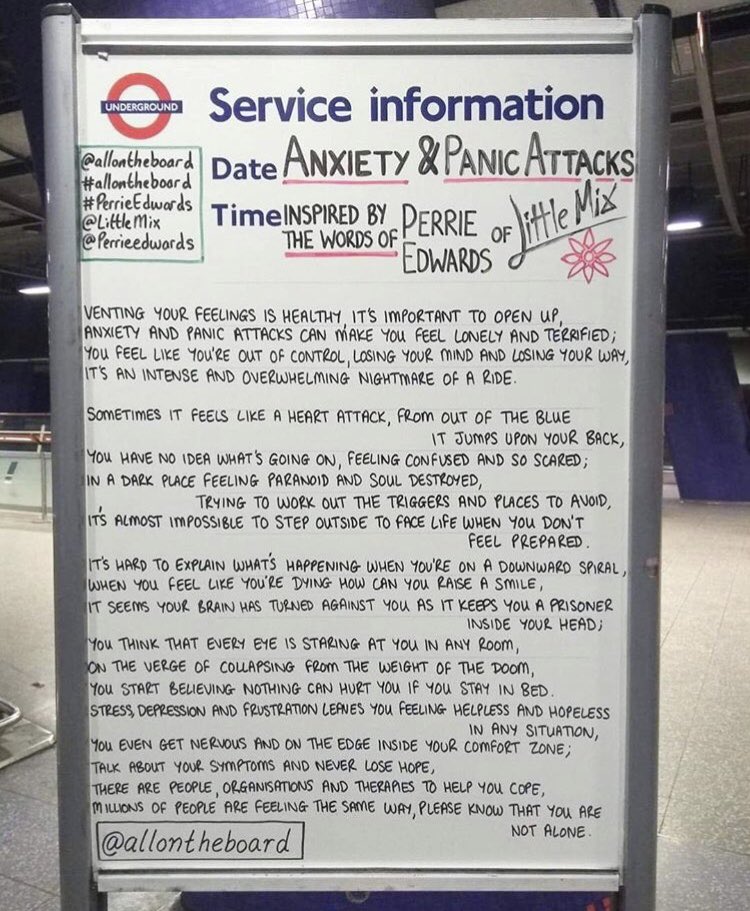 UNDERGROUND
Service information
@allontheboard
#allontheboard
#PerrieEdwards
@LittleMix
@Perrieedwards
Date ANXIETY & PANIC ATTACKS
Time INSPIRED BY THE WORDS OF PERRIE EDWARDS OF Little Mix
VENTING YOUR FEELINGS IS HEALTHY, IT'S IMPORTANT TO OPEN UP,
ANXIETY AND PANIC ATTACKS CAN MAKE YOU FEEL LONELY AND TERRIFIED;
YOU FEEL LIKE YOU'RE OUT OF CONTROL, LOSING YOUR MIND AND LOSING YOUR WAY,
IT'S AN INTENSE AND OVERWHELMING NIGHTMARE OF A RIDE.
SOMETIMES IT FEELS LIKE A HEART ATTACK, FROM OUT OF THE BLUE
IT JUMPS UPON YOUR BACK,
YOU HAVE NO IDEA WHAT'S GOING ON, FEELING CONFUSED AND SO SCARED;
IN A DARK PLACE FEELING PARANOID AND SOUL DESTROYED,
TRYING TO WORK OUT THE TRIGGERS AND PLACES TO AVOID,
IT'S ALMOST IMPOSSIBLE TO STEP OUTSIDE TO FACE LIFE WHEN YOU DON'T
FEEL PREPARED.
IT'S HARD TO EXPLAIN WHAT'S HAPPENING WHEN YOU'RE ON A DOWNWARD SPIRAL,
WHEN YOU FEEL LIKE YOU'RE DYING HOW CAN YOU RAISE A SMILE,
IT SEEMS YOUR BRAIN HAS TURNED AGAINST YOU AS IT KEEPS YOU A PRISONER
INSIDE YOUR HEAD;
YOU THINK THAT EVERY EYE IS STARING AT YOU IN ANY ROOM,
ON THE VERGE OF COLLAPSING FROM THE WEIGHT OF THE DOOM,
YOU START BELIEVING NOTHING CAN HURT YOU IF YOU STAY IN BED.
STRESS, DEPRESSION AND FRUSTRATION LEAVES YOU FEELING HELPLESS AND HOPELESS
IN ANY SITUATION,
YOU EVEN GET NERVOUS AND ON THE EDGE INSIDE YOUR COMFORT ZONE;
TALK ABOUT YOUR SYMPTOMS AND NEVER LOSE HOPE,
THERE ARE PEOPLE, ORGANISATIONS AND THERAPIES TO HELP YOU COPE,
MILLIONS OF PEOPLE ARE FEELING THE SAME WAY, PLEASE KNOW THAT YOU ARE
NOT ALONE.
@allontheboard